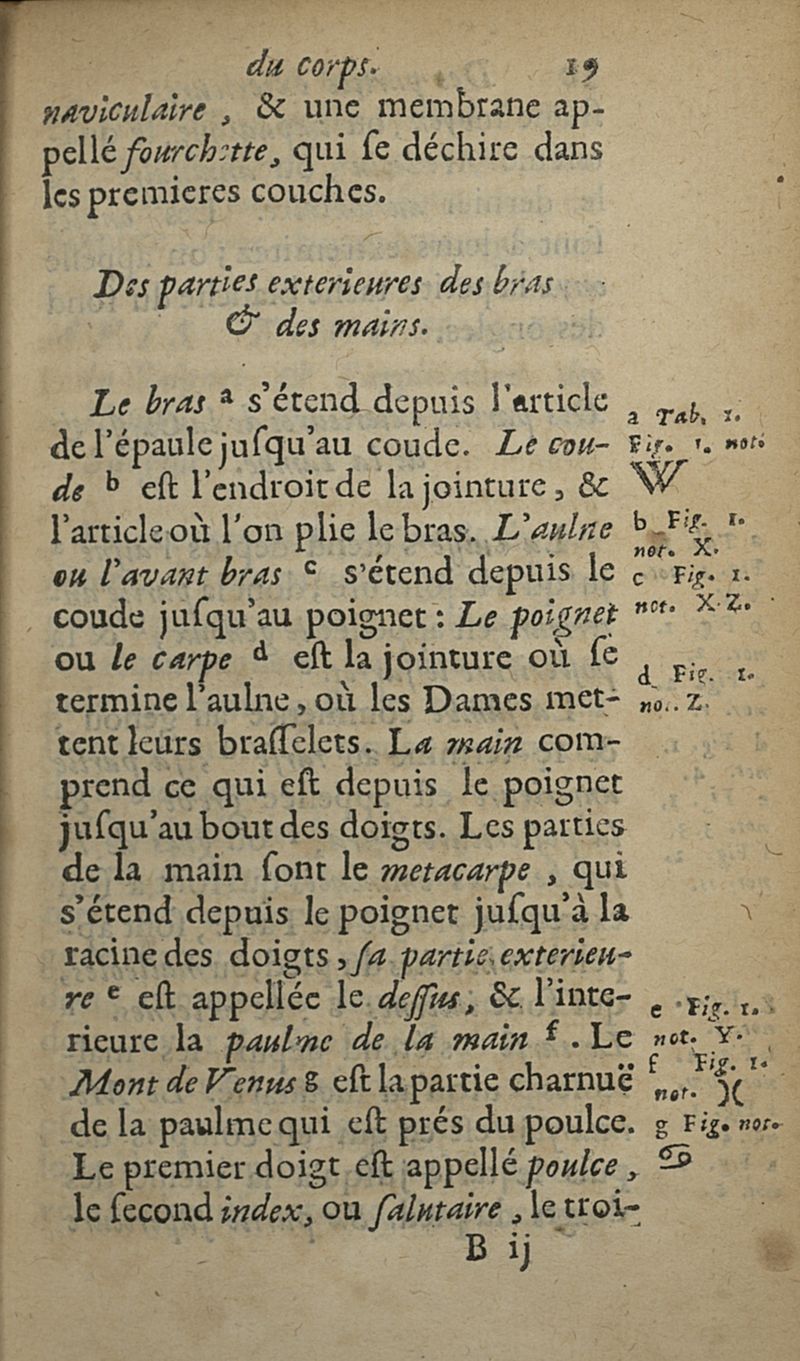 du corps. 19
naviculaire , & une membrane ap-
pellé fourchette, qui ſe déchire dans
les premieres couches.
Des parties exterieures des bras
& des mains.
Le bras a s'étend depuis l'article
de l'épaule juſqu'au coude. Le cou-
de b eſt l'endroit de la jointure, &
l'article où l'on plie le bras. L'aulne
ou l'avant bras c s'étend depuis le
coude juſqu'au poignet : Le poignet
ou le carpe d eſt la jointure où ſe
termine l'aulne, où les Dames met-
tent leurs braſſelets. La main com-
prend ce qui eſt depuis le poignet
juſqu'au bout des doigts. Les parties
de la main ſont le metacarpe , qui
s'étend depuis le poignet juſqu'à la
racine des doigts, ſa partie exterieu-
re e eſt appellée le deſſus, & l'inte-
rieure la paulme de la main f . Le
Mont de Venus g eſt la partie charnuë
de la paulme qui eſt prés du poulce.
Le premier doigt eſt appellé poulce ,
le ſecond index, ou ſalutaire , le troi-
B ij
a Tab. 1.
Fig. 1. not.
W
b Fig. 1.
not. X.
c Fig. 1.
not. X. Z.
d Fig. 1.
no. Z.
e Fig. 1.
not. Y.
f Fig. 1.
not. )(
g Fig. not.
♋